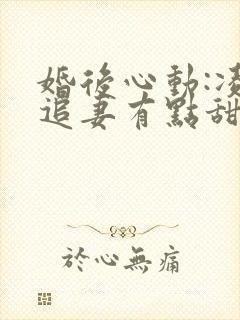 婚後心動:凌
追妻有點甜
於心無痛